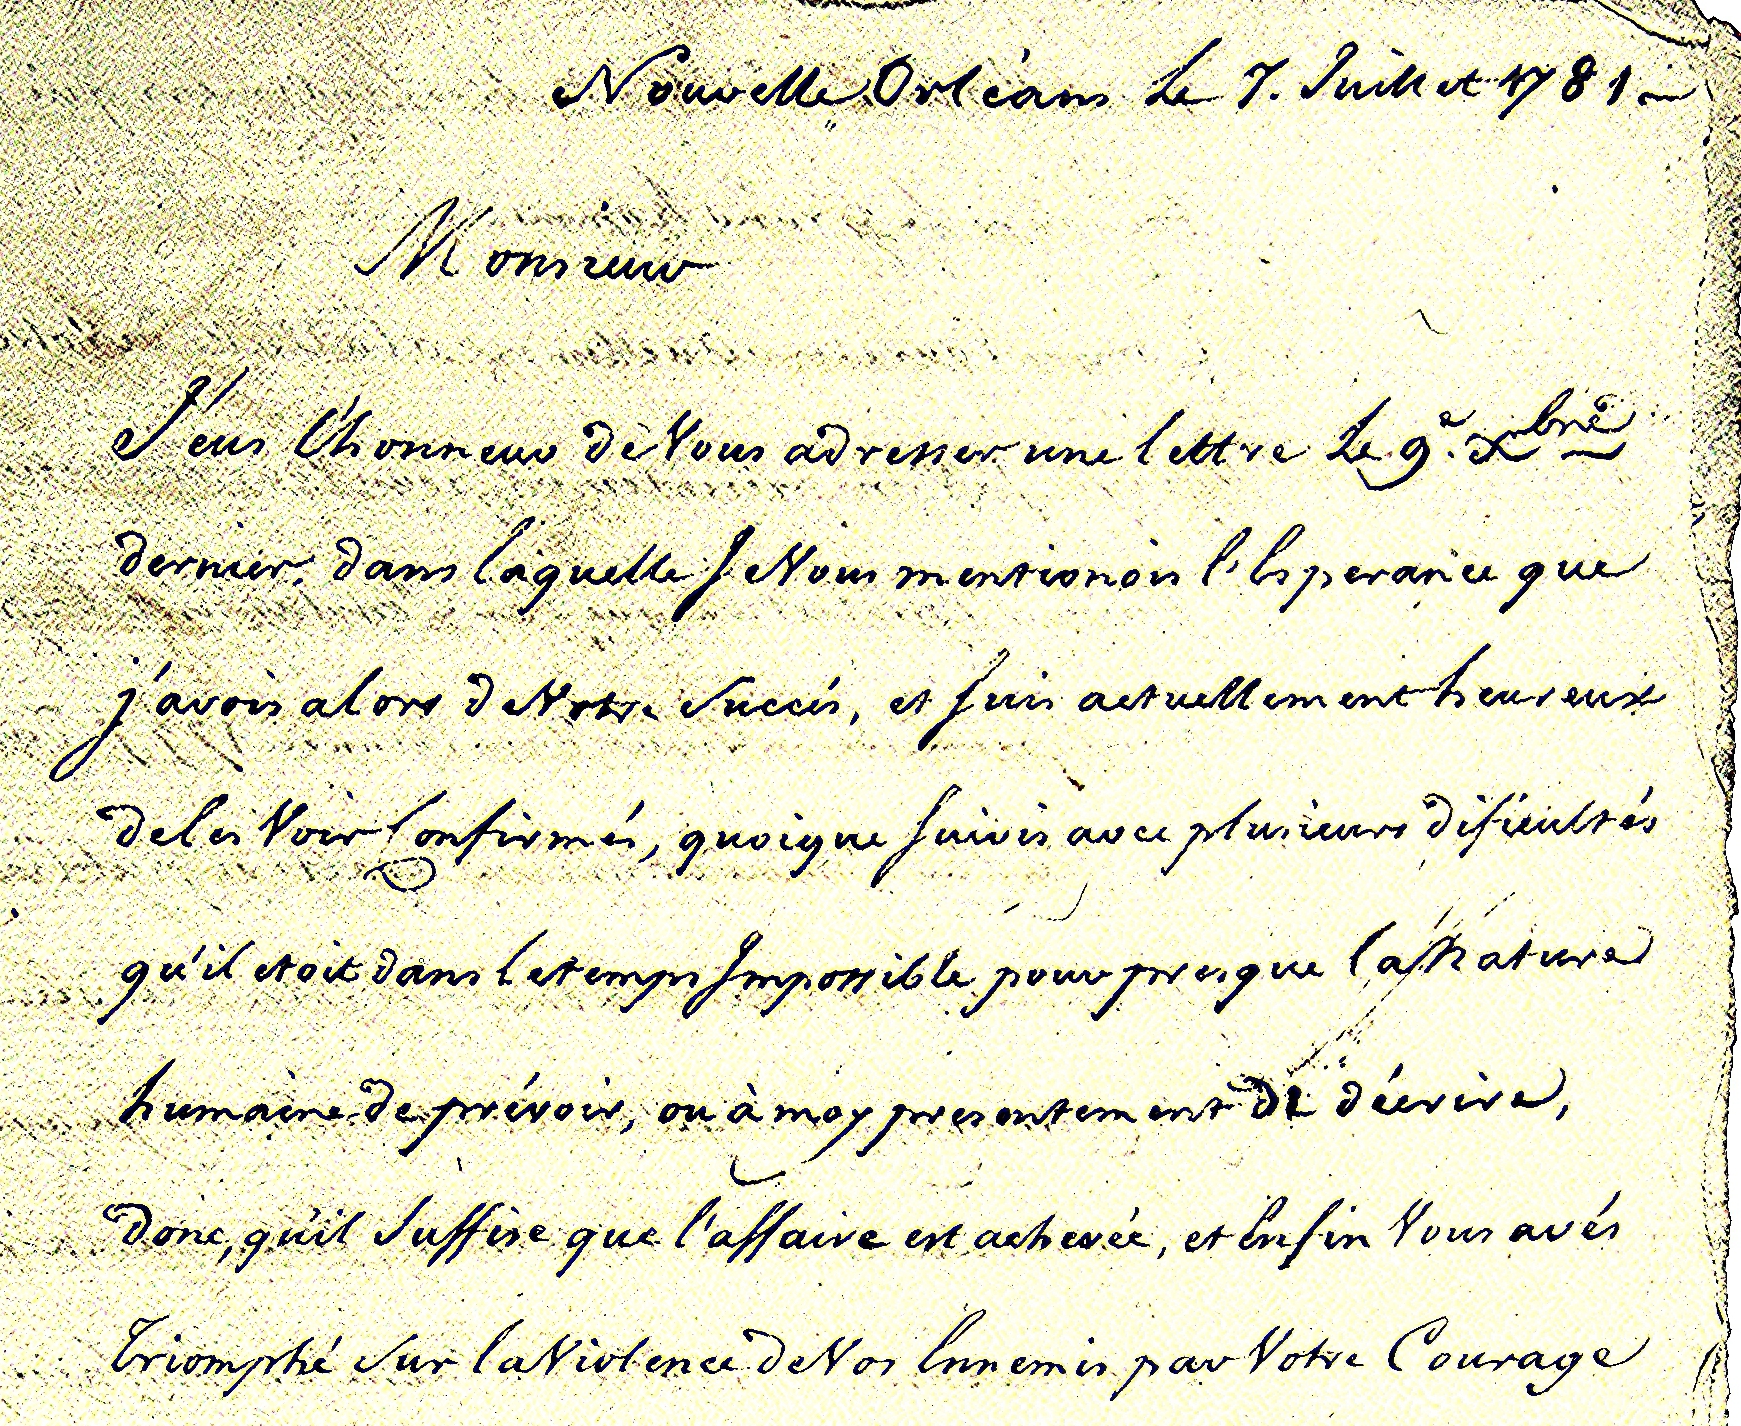 Nouvelle Orléans Le 7. Juillet 1781
Monsieur
J'eus l'honneur de Vous adresser une lettre Le 9.e Xbre
dernier, dans laquelle Je Vous mentionois l'Esperance que
j'avois alors de Votre Succés, et suis actuellement heureux
de les Voir Confirmés, quoique suivis avec plusieurs dificultés
qu'il etoit dans le temps Impossible pour presque la Nature
humaine de prévoir, ou à moy presentement de décrire,
donc, qu'il Suffise que l'affaire est achevée, et Enfin Vous avés
Triomphé Sur la Violence de Vos Ennemis par Votre Courage